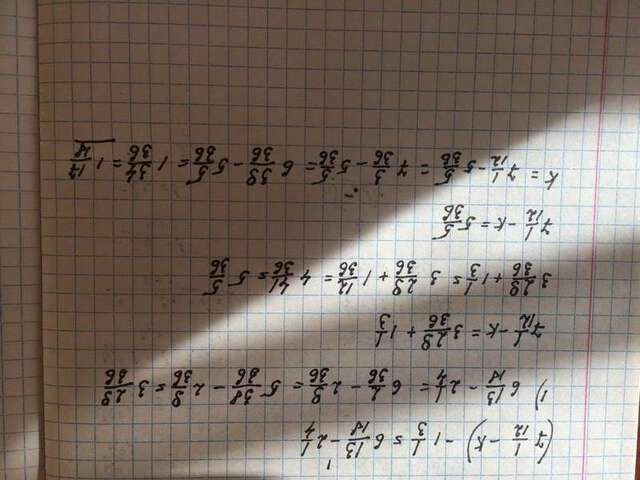 (7 1/12 - k) - 1 1/3 = 6 13/18 - 2 1/4
1) 6 13/18 - 2 1/4 = 6 2/36 - 2 9/36 = 5 38/36 - 2 9/36 = 3 29/36
7 1/12 - k = 3 29/36 + 1 1/3
3 29/36 + 1 1/3 = 3 29/36 + 1 12/36 = 4 41/36 = 5 5/36
7 1/12 - k = 5 5/36
k = 7 1/12 - 5 5/36 = 7 3/36 - 5 5/36 = 6 39/36 - 5 5/36 = 1 34/36 = 1 17/18